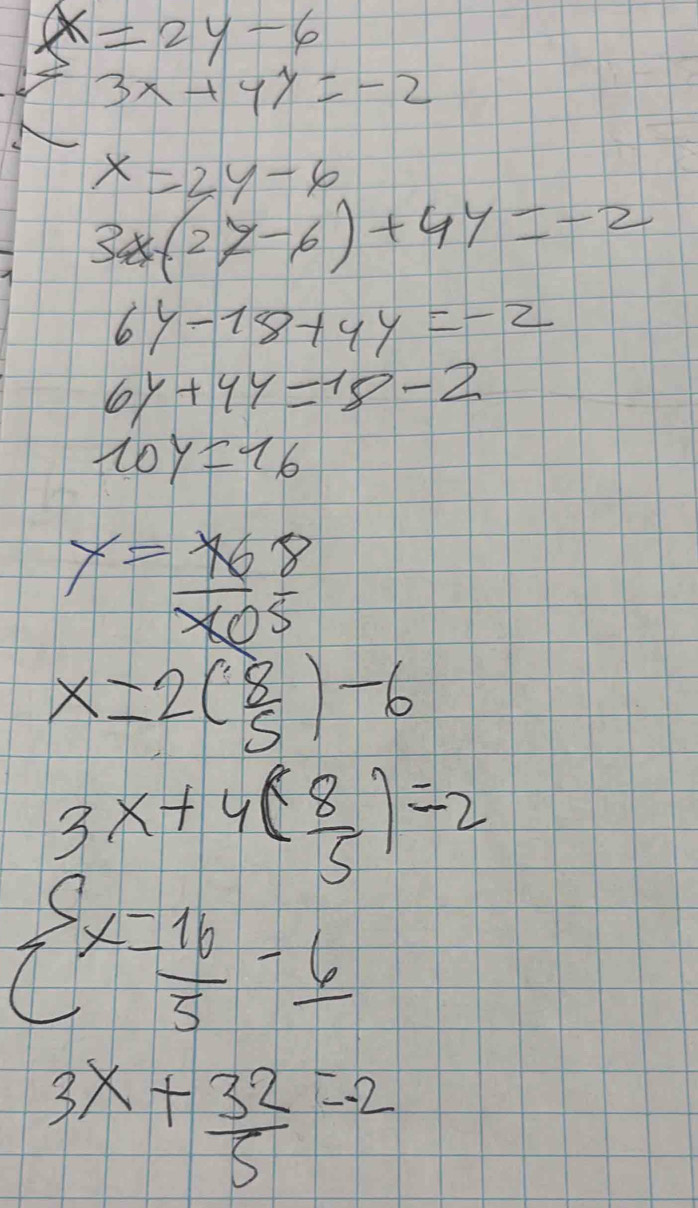 x = 2y - 6
3x + 4y = -2
x = 2y - 6
3(2y - 6) + 4y = -2
6y - 18 + 4y = -2
6y + 4y = 18 - 2
10y = 16
y = 16/10 8/5
x = 2(8/5) - 6
3x + 4(8/5) = -2
x = 16/5 - 6
3x + 32/5 = -2